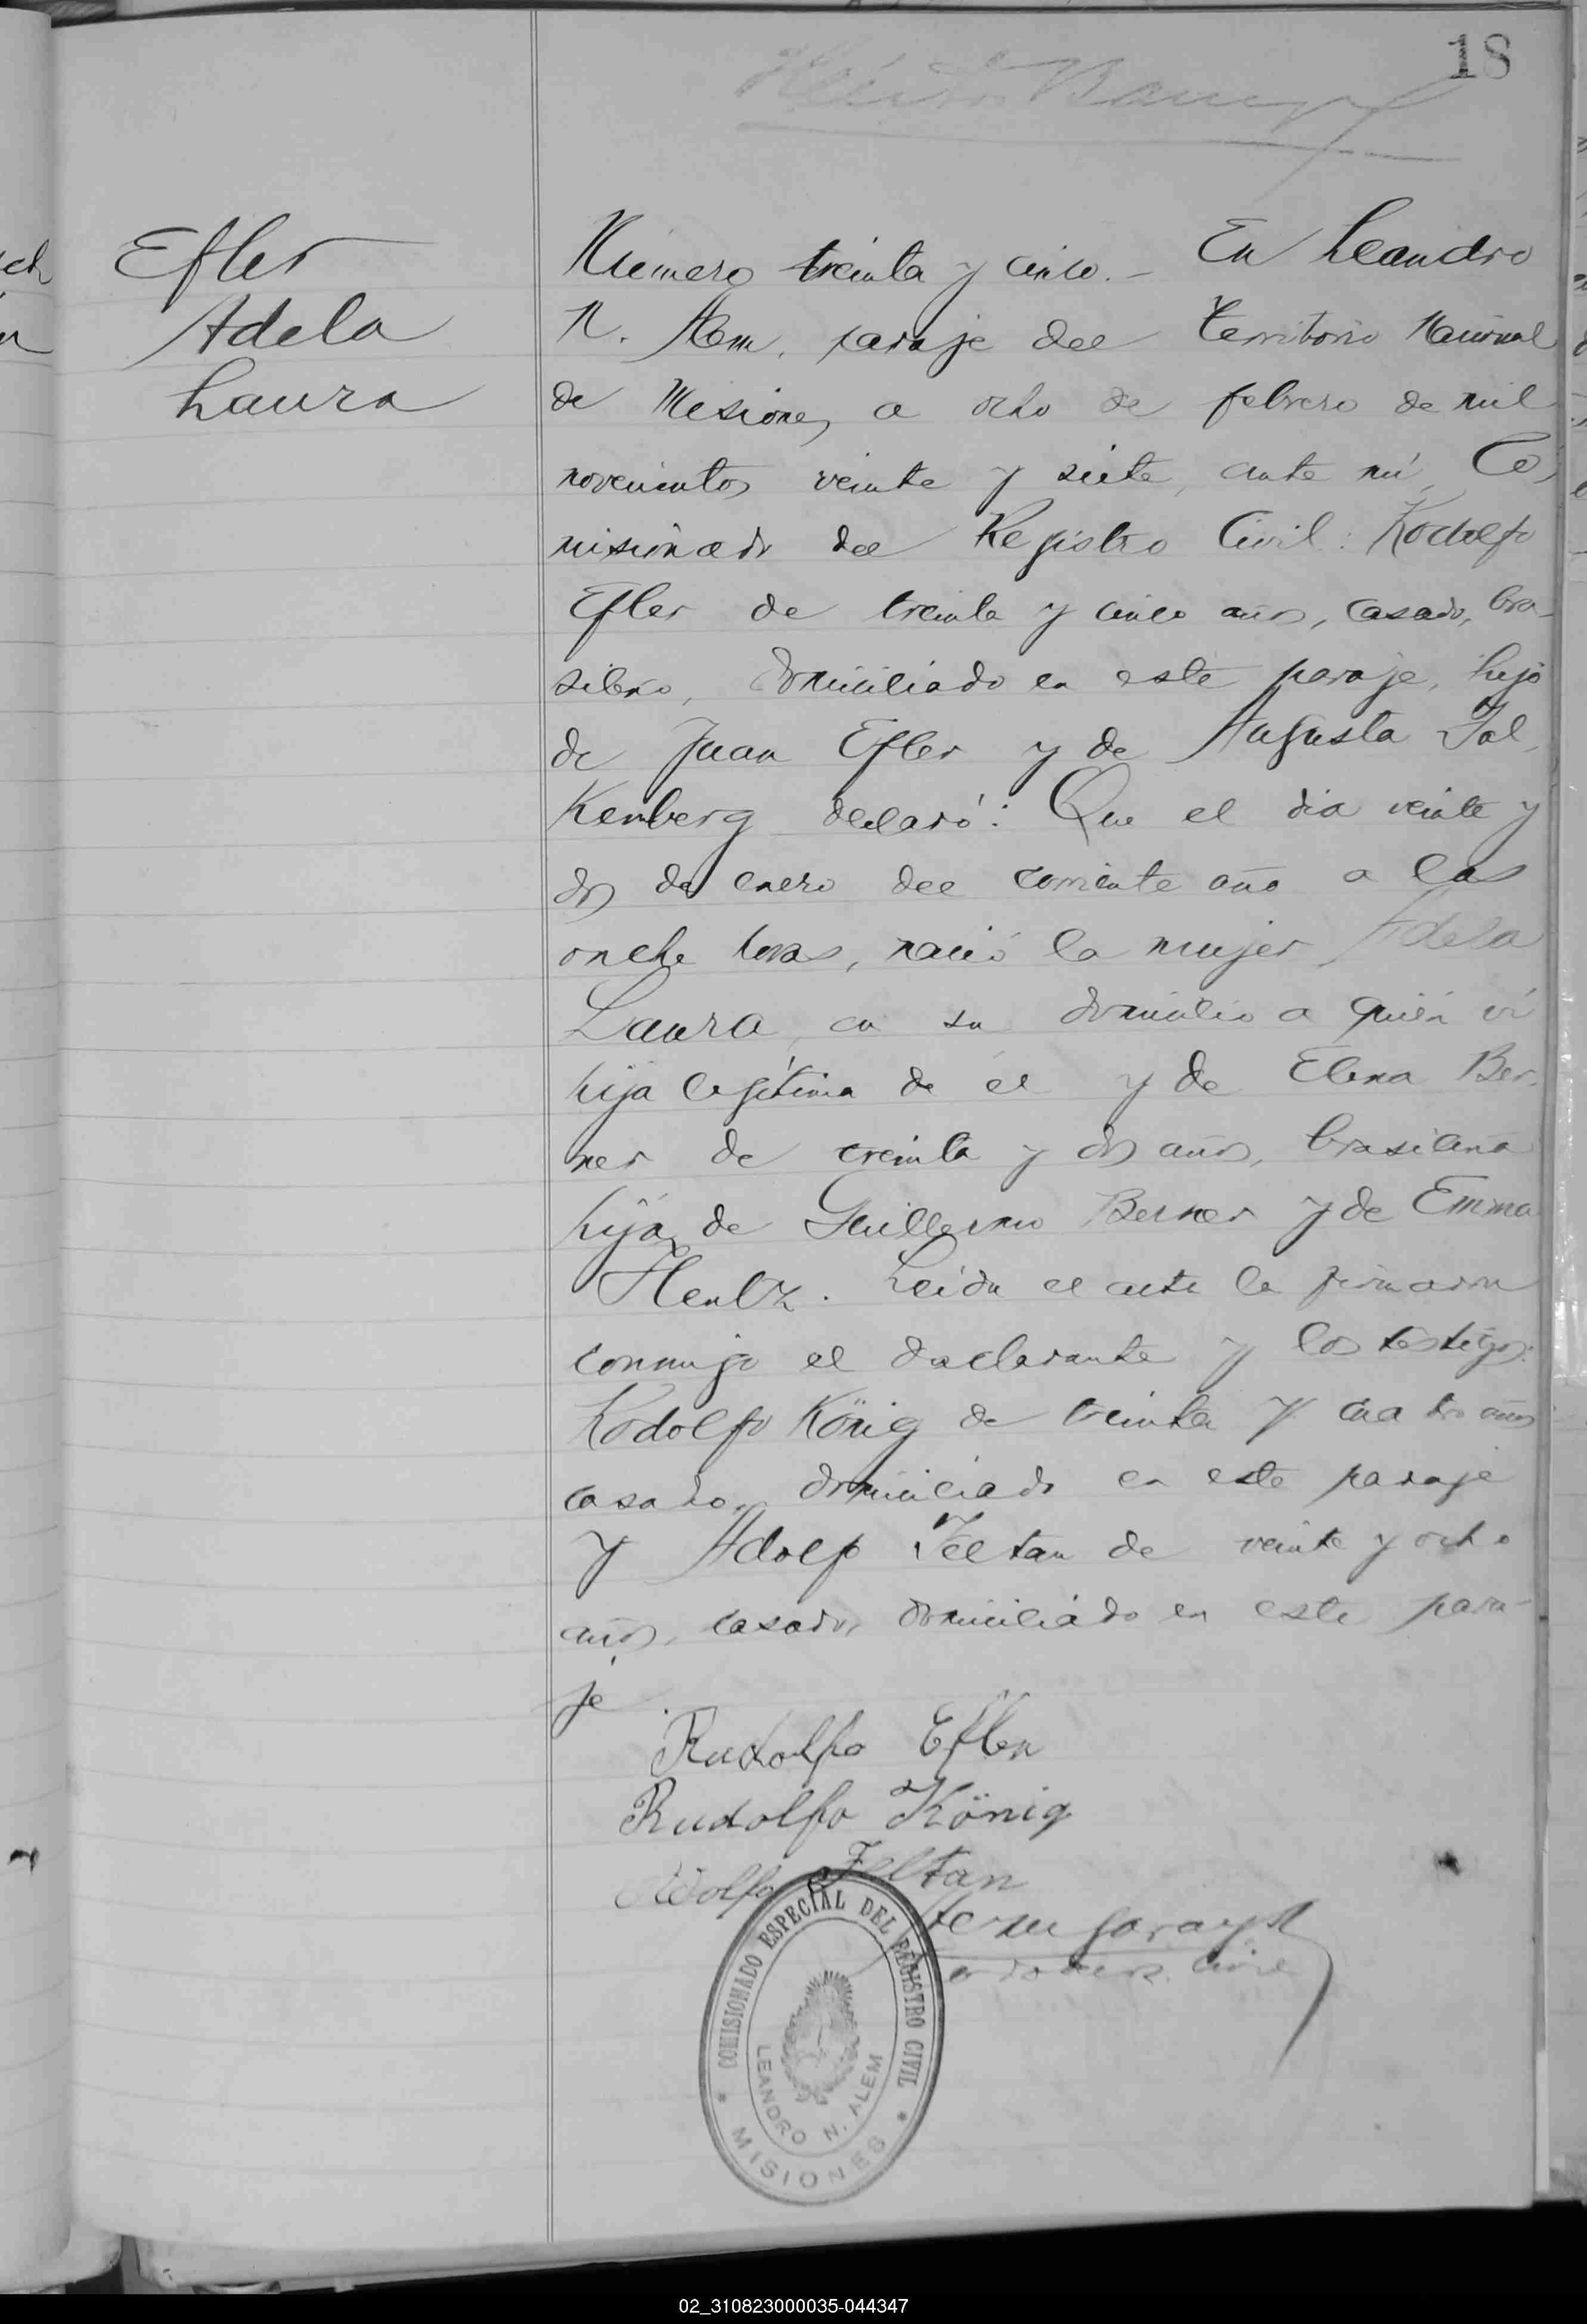 18
Efler
Adela
Laura
Número treinta y cinco.- En Leandro
N. Alem, paraje del Territorio Nacional
de Misiones, a ocho de febrero de mil
novecientos veinte y siete, ante mí, Co-
misionado del Registro Civil: Rodolfo
Efler de treinta y cinco años, casado, bra-
sileño, domiciliado en este paraje, hijo
de Juan Efler y de Augusta Fal-
kenberg declaró: Que el día veinte y
dos de enero del corriente año a las
onche horas, nació la mujer Adela
Laura, en su domicilio a quién ví
hija legítima de él y de Elena Ber-
ner de treinta y dos años, brasileña
hija de Guillermo Berner y de Emma
Hentz. Leída el acta la firmaron
conmigo el declarante y los testigos:
Rodolfo König de treinta y cuatro años
casado, domiciliado en este paraje
y Adolfo Feltan de veinte y ocho
años, casado, domiciliado en este para-
je.
Rudolfo Efler
Rudolfo König
Adolfo Feltan
COMISIONADO ESPECIAL DEL REGISTRO CIVIL
LEANDRO N. ALEM
* MISIONES *
02_310823000035-044347